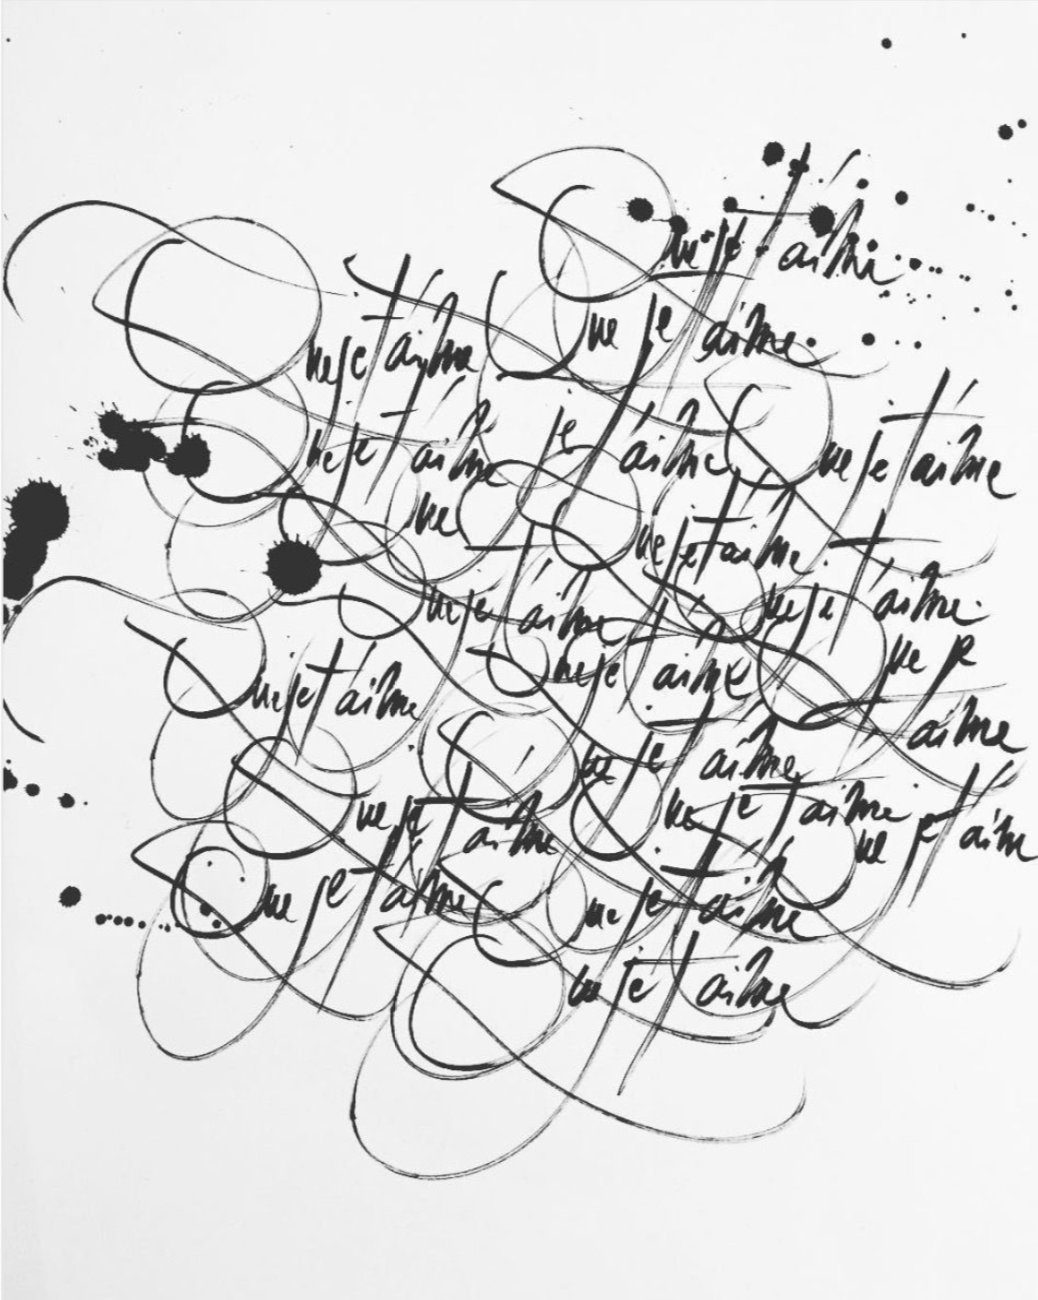 Que je t'aime
Que je t'aime
Que je t'aime
Que je t'aime
Que je t'aime
Que je t'aime
Que je t'aime
Que je t'aime
Que je t'aime
Que je t'aime
Que je
t'aime
Que je t'aime
Que je t'aime
Que je t'aime
Que je t'aime
Que je t'aime
Que je t'aime
Que je t'aime
Que je t'aime